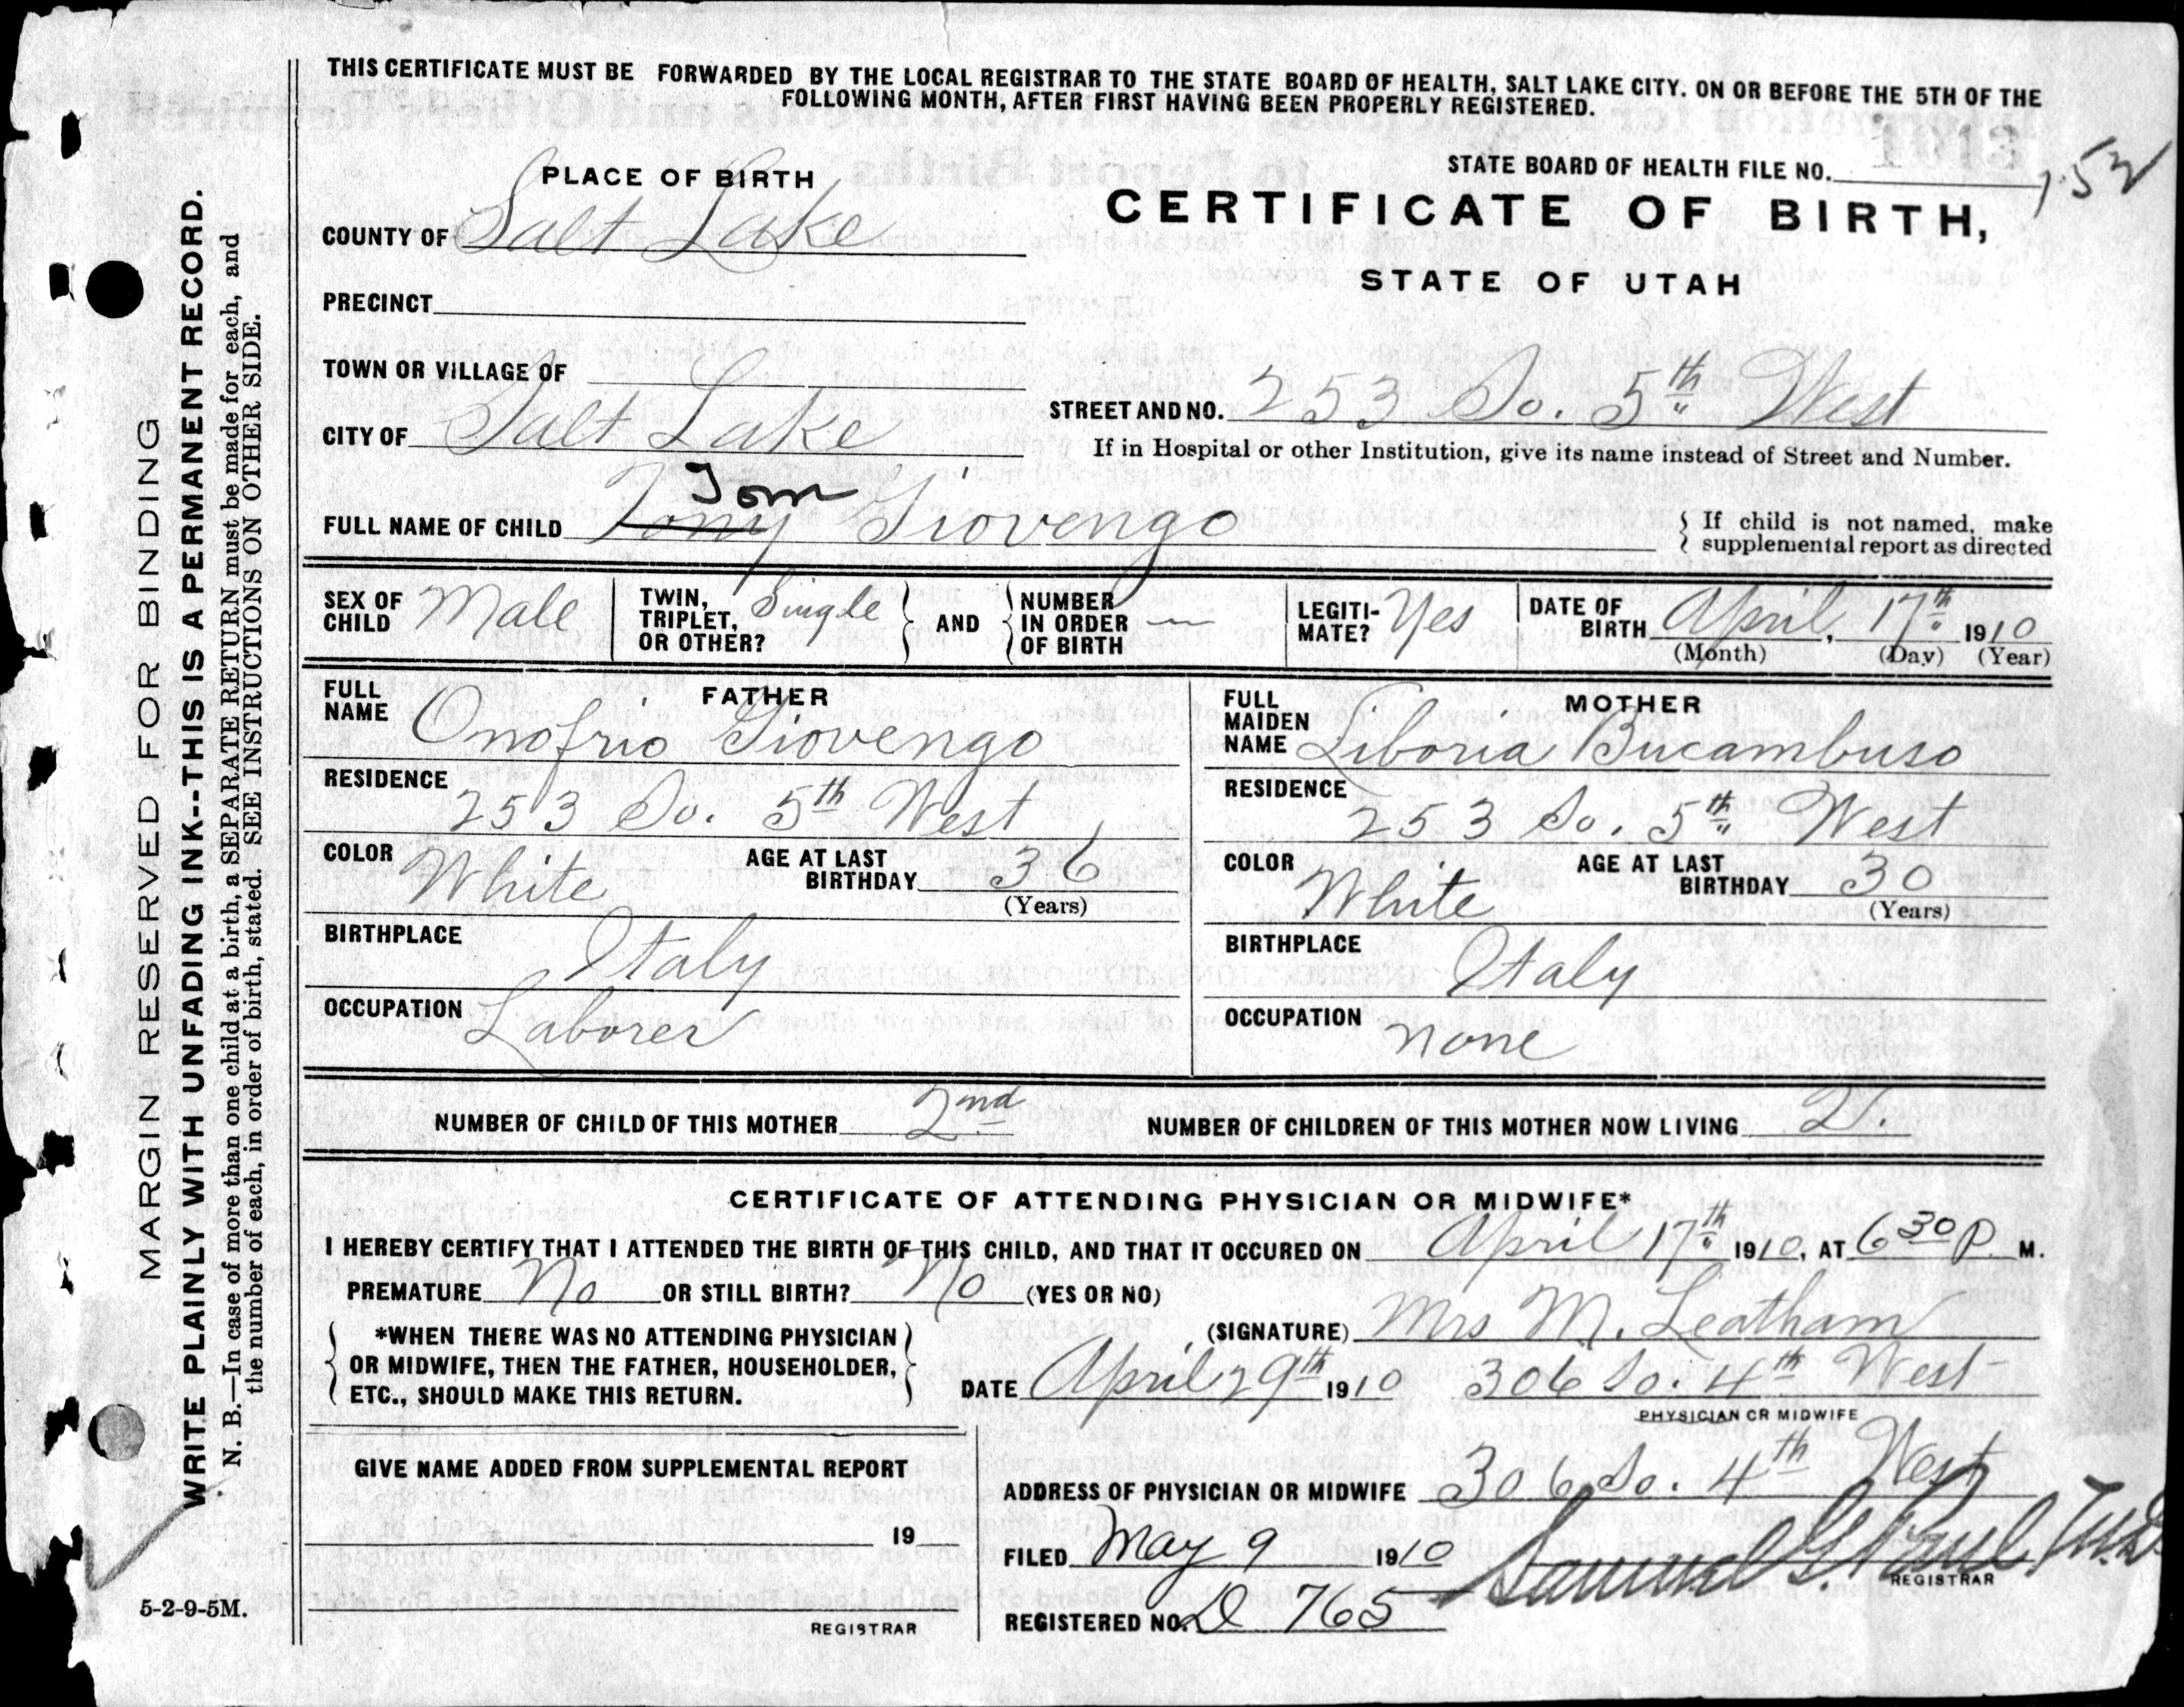 THIS CERTIFICATE MUST BE FORWARDED BY THE LOCAL REGISTRAR TO THE STATE BOARD OF HEALTH, SALT LAKE CITY. ON OR BEFORE THE 5TH OF THE
FOLLOWING MONTH, AFTER FIRST HAVING BEEN PROPERLY REGISTERED.
PLACE OF BIRTH
STATE BOARD OF HEALTH FILE NO. 152
COUNTY OF Salt Lake
CERTIFICATE OF BIRTH,
STATE OF UTAH
PRECINCT
TOWN OR VILLAGE OF
STREET AND NO. 253 So. 5th West
CITY OF Salt Lake
If in Hospital or other Institution, give its name instead of Street and Number.
Tom
FULL NAME OF CHILD Tony Giovengo
{ If child is not named, make
supplemental report as directed
SEX OF CHILD Male
TWIN, TRIPLET, OR OTHER? Single } AND { NUMBER IN ORDER OF BIRTH —
LEGITI-MATE? Yes
DATE OF BIRTH April, 17th 1910
(Month) (Day) (Year)
FATHER
FULL NAME Onofrio Giovengo
RESIDENCE 253 So. 5th West
COLOR White AGE AT LAST BIRTHDAY 36
(Years)
BIRTHPLACE Italy
OCCUPATION Laborer
MOTHER
FULL MAIDEN NAME Liboria Bucambuso
RESIDENCE 253 So. 5th West
COLOR White AGE AT LAST BIRTHDAY 30
(Years)
BIRTHPLACE Italy
OCCUPATION none
NUMBER OF CHILD OF THIS MOTHER 2nd NUMBER OF CHILDREN OF THIS MOTHER NOW LIVING 2.
CERTIFICATE OF ATTENDING PHYSICIAN OR MIDWIFE*
I HEREBY CERTIFY THAT I ATTENDED THE BIRTH OF THIS CHILD, AND THAT IT OCCURED ON April 17th 1910, AT 6 30 P. M.
PREMATURE No OR STILL BIRTH? No (YES OR NO)
*WHEN THERE WAS NO ATTENDING PHYSICIAN
OR MIDWIFE, THEN THE FATHER, HOUSEHOLDER,
ETC., SHOULD MAKE THIS RETURN.
(SIGNATURE) Mrs M. Leatham
DATE April 29th 1910 306 So. 4th West
PHYSICIAN OR MIDWIFE
GIVE NAME ADDED FROM SUPPLEMENTAL REPORT
19
REGISTRAR
ADDRESS OF PHYSICIAN OR MIDWIFE 306 So. 4th West
FILED May 9 1910 Samuel G. Paul M.D.
REGISTRAR
REGISTERED NO. D 765
MARGIN RESERVED FOR BINDING
WRITE PLAINLY WITH UNFADING INK--THIS IS A PERMANENT RECORD.
N. B.—In case of more than one child at a birth, a SEPARATE RETURN must be made for each, and
the number of each, in order of birth, stated. SEE INSTRUCTIONS ON OTHER SIDE.
5-2-9-5M.